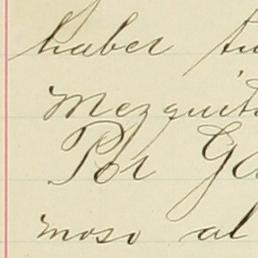 haber tu
Mezquit
Por Ga
moso al